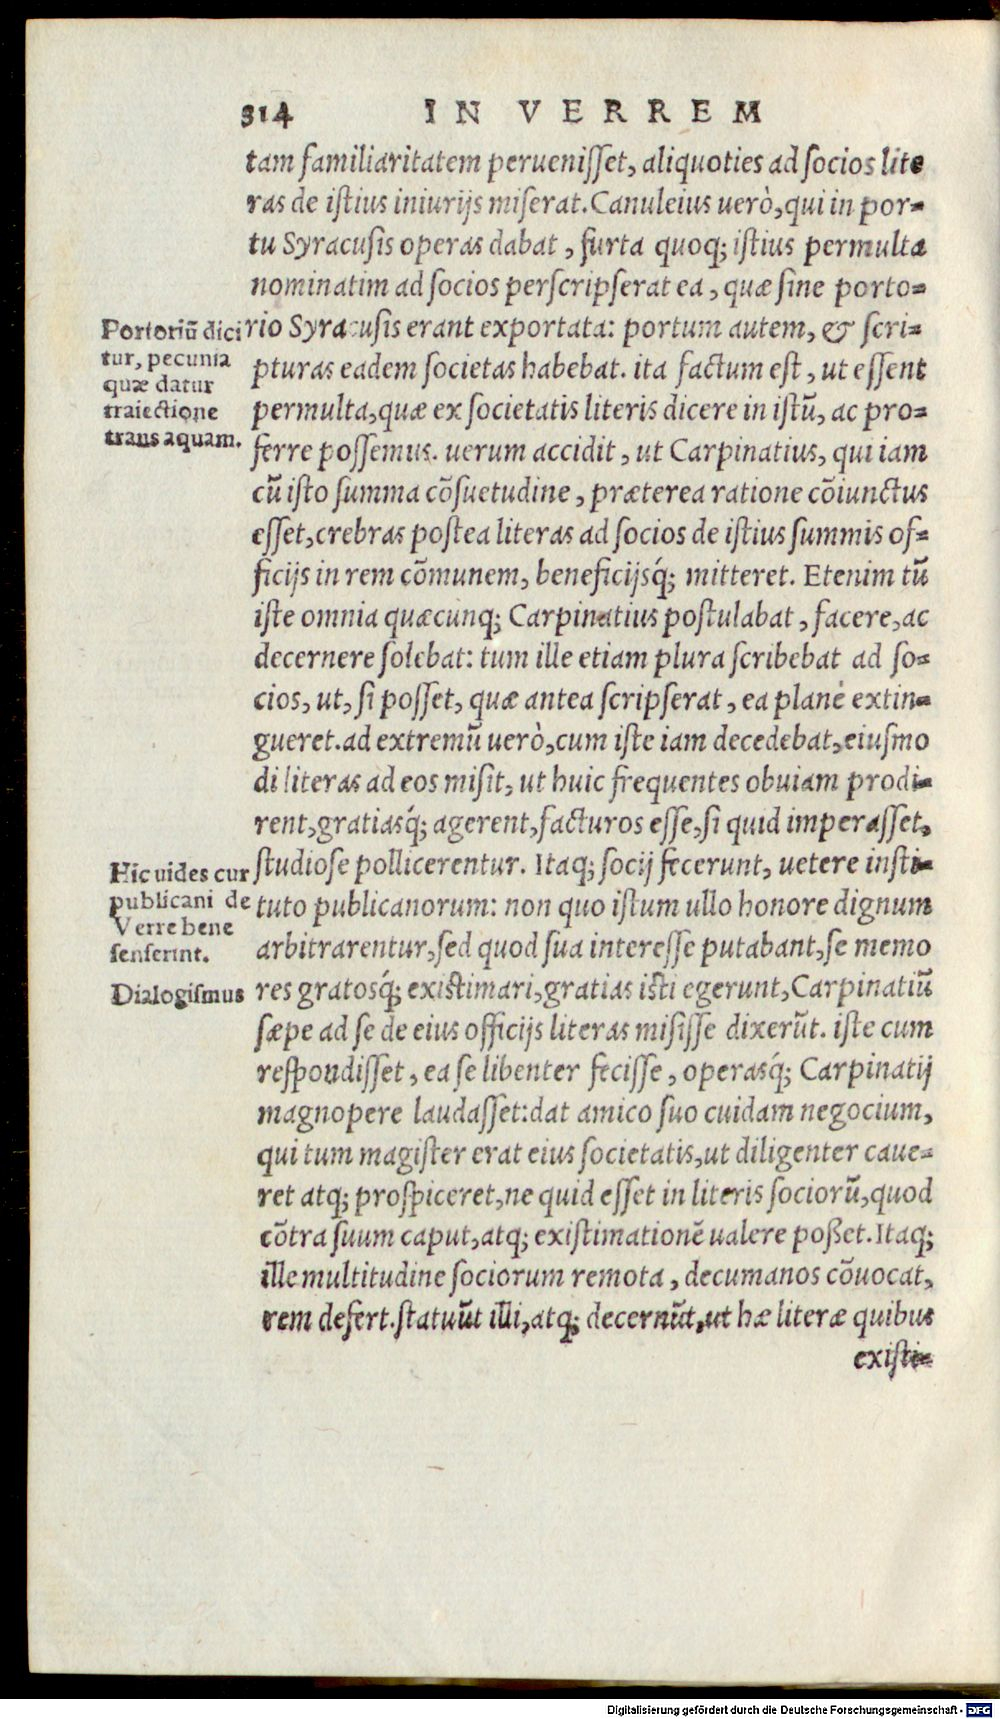 314 IN VERREM
tam familiaritatem peruenisset, aliquoties ad socios lite
ras de istius iniurijs miserat. Canuleius uerò, qui in por-
tu Syracusis operas dabat, furta quoq; istius permulta
nominatim ad socios perscripserat ea, quæ sine porto-
rio Syracusis erant exportata: portum autem, & scri-
pturas eadem societas habebat. ita factum est, ut essent
permulta, quæ ex societatis literis dicere in istũ, ac pro-
ferre possemus. uerum accidit, ut Carpinatius, qui iam
cũ isto summa cõsuetudine, præterea ratione cõiunctus
esset, crebras postea literas ad socios de istius summis of-
ficijs in rem cõmunem, beneficijsq́; mitteret. Etenim tũ
iste omnia quæcunq; Carpinatius postulabat, facere, ac
decernere solebat: tum ille etiam plura scribebat ad so-
cios, ut, si posset, quæ antea scripserat, ea planè extin-
gueret. ad extremũ uerò, cum iste iam decedebat, eiusmo
di literas ad eos misit, ut huic frequentes obuiam prodi-
rent, gratiasq́; agerent, facturos esse, si quid imperasset,
studiose pollicerentur. Itaq; socij fecerunt, uetere insti-
tuto publicanorum: non quo istum ullo honore dignum
arbitrarentur, sed quod sua interesse putabant, se memo
res gratosq́; existimari, gratias isti egerunt, Carpinatiũ
sæpe ad se de eius officijs literas misisse dixerũt. iste cum
respondisset, ea se libenter fecisse, operasq́; Carpinatij
magnopere laudasset: dat amico suo cuidam negocium,
qui tum magister erat eius societatis, ut diligenter caue-
ret atq; prospiceret, ne quid esset in literis sociorũ, quod
cõtra suum caput, atq; existimationẽ ualere poßet. Itaq;
ille multitudine sociorum remota, decumanos cõuocat,
rem defert. statuũt illi, atq; decernũt, ut hæ literæ quibus
existi-
Portoriũ dici
tur, pecunia
quæ datur
traiectione
trans aquam.
Hic uides cur
publicani de
Verre bene
senserint.
Dialogismus
Digitalisierung gefördert durch die Deutsche Forschungsgemeinschaft - DFG